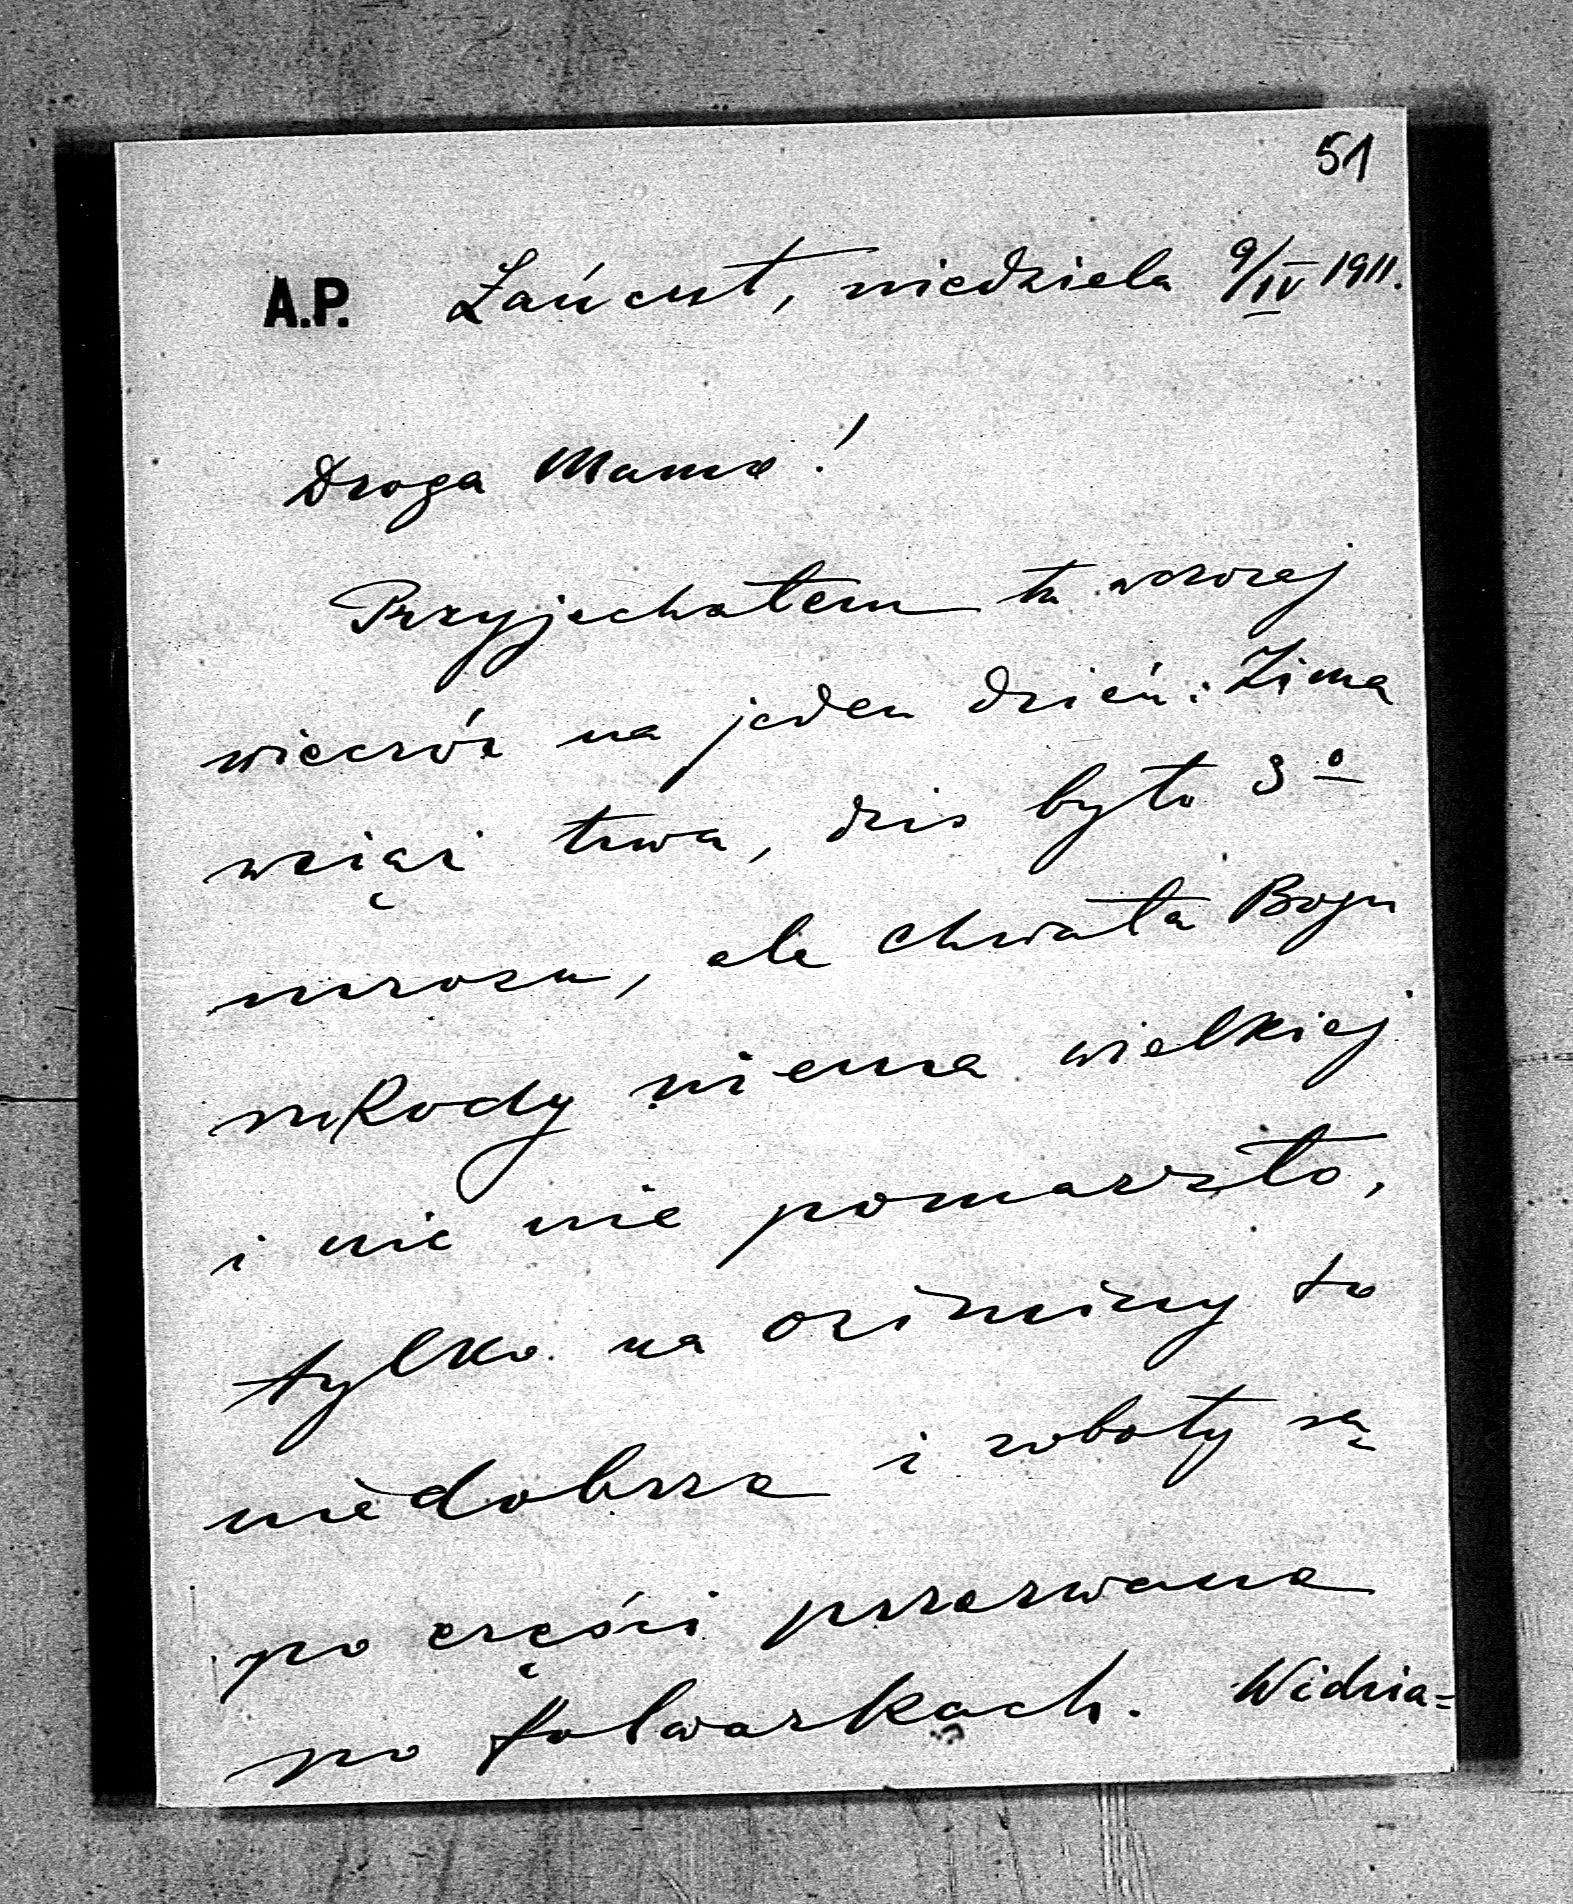 51
A.P. Łańcut, niedziela 9/IV 1911.
Droga Mamo!
Przyjechałem tu wczoraj
wieczór na jeden dzień. Zima
wciąż trwa, dziś było 3°
mrozu, ale chwała Bogu
szkody niema wielkiej
i nic nie pomarzło,
tylko na oziminy to
niedobrze i roboty są
po części przerwane
po folwarkach. Widzia=